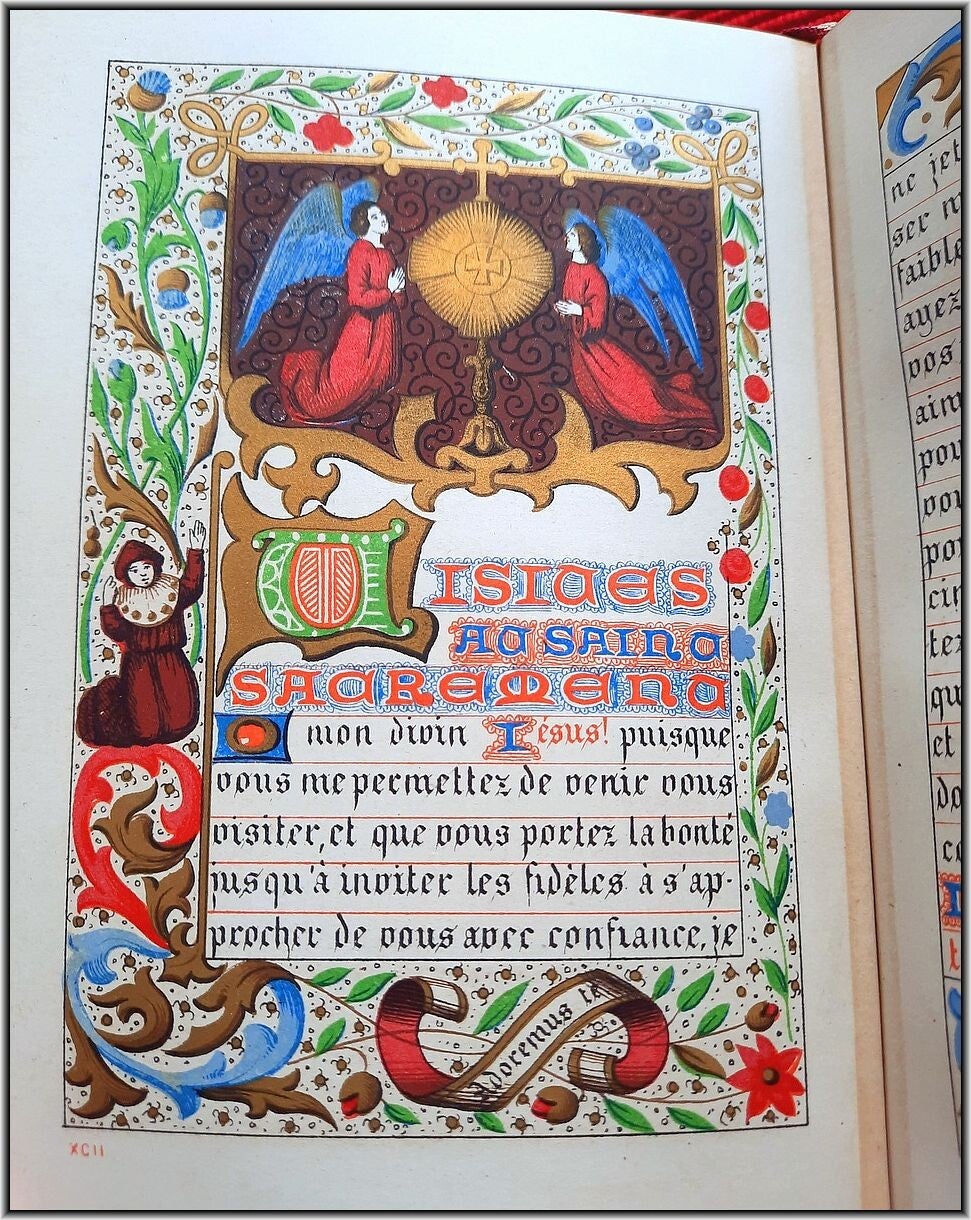 VISITES
AU SAINT
SACREMENT
O mon divin Jésus! puisque
vous me permettez de venir vous
visiter, et que vous portez la bonté
jusqu'à inviter les fidèles à s'ap-
procher de vous avec confiance, je
Adoremus te
XCII
ne jet
ser
faible
ayez
vos
aim
pou
vou
pou
cin
tez
qu
et
do